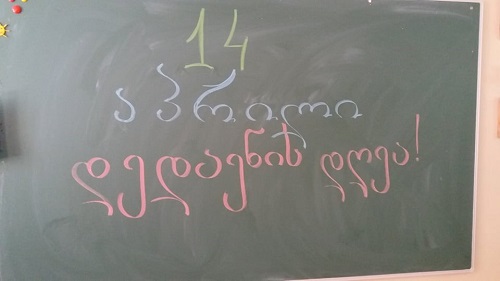 14
აპრილი
დედაენის დღეა!